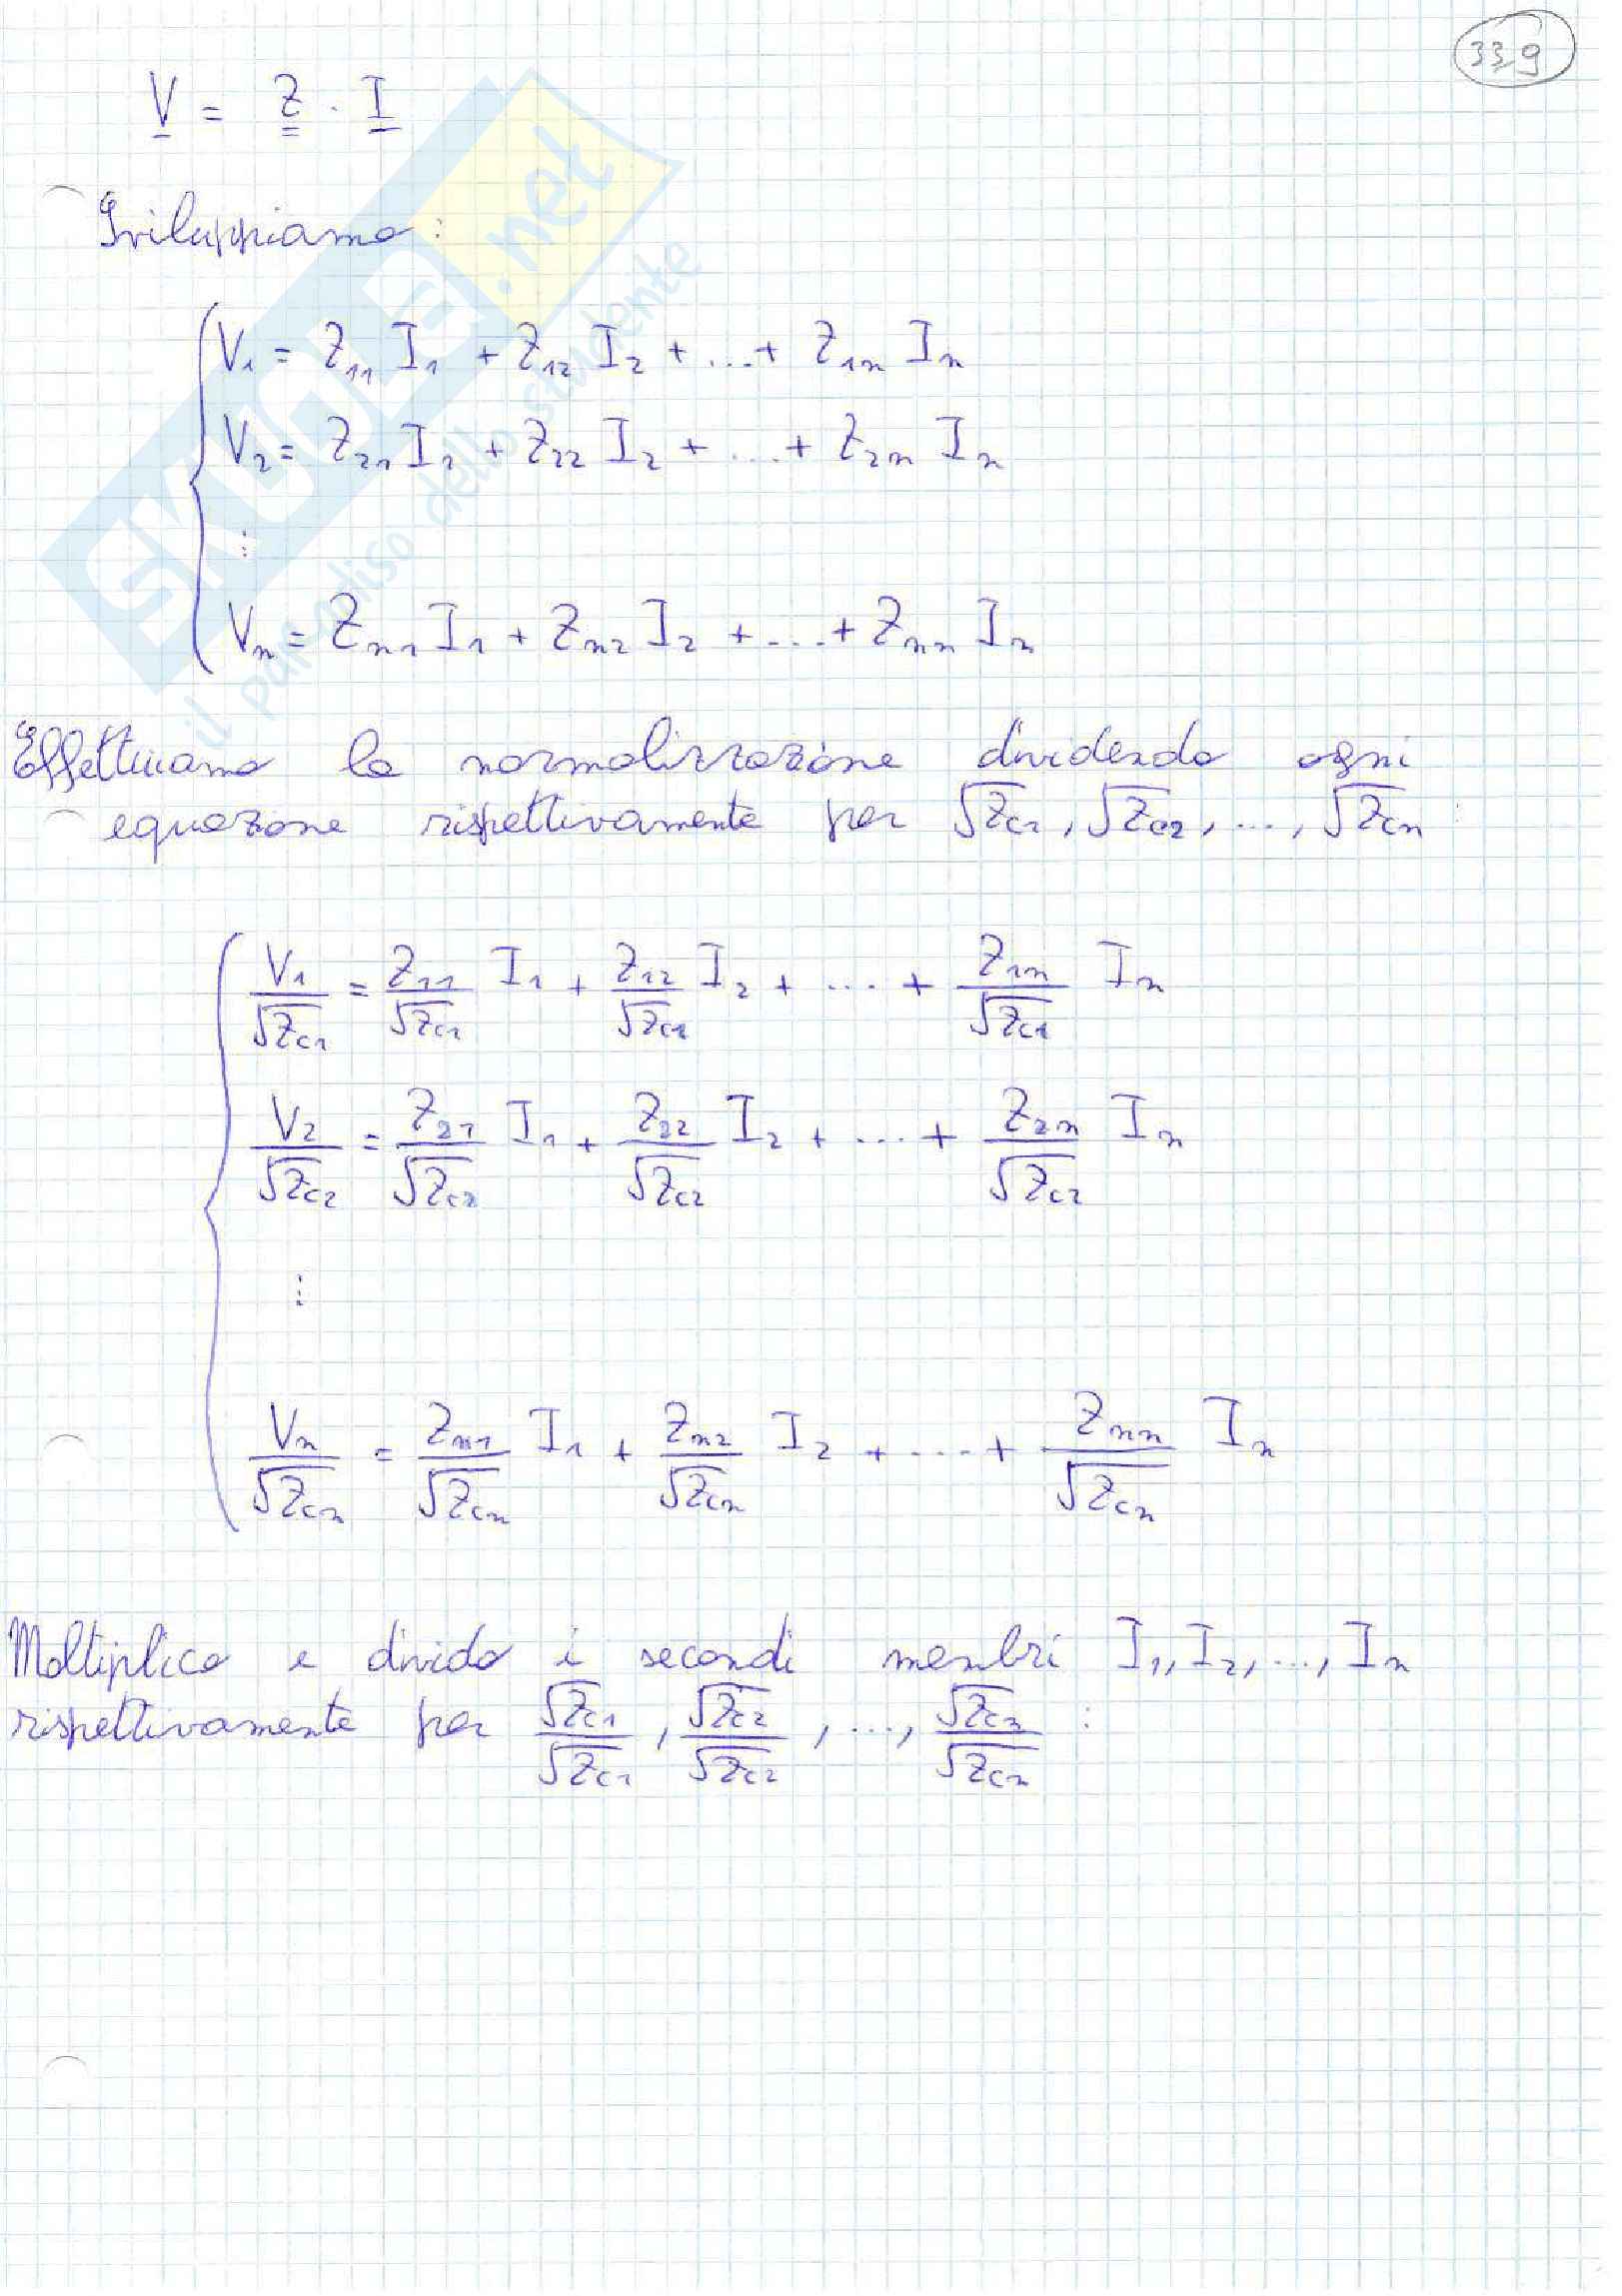 339
V = Z · I
Sviluppiamo:
V₁ = Z₁₁ I₁ + Z₁₂ I₂ + ... + Z₁ₙ Iₙ
V₂ = Z₂₁ I₁ + Z₂₂ I₂ + ... + Z₂ₙ Iₙ
⋮
Vₙ = Zₙ₁ I₁ + Zₙ₂ I₂ + ... + Zₙₙ Iₙ
Effettuiamo la normalizzazione dividendo ogni
equazione rispettivamente per √Zc1, √Zc2, ..., √Zcn :
V₁/√Zc1 = Z₁₁/√Zc1 I₁ + Z₁₂/√Zc1 I₂ + ... + Z₁ₙ/√Zc1 Iₙ
V₂/√Zc2 = Z₂₁/√Zc2 I₁ + Z₂₂/√Zc2 I₂ + ... + Z₂ₙ/√Zc2 Iₙ
⋮
Vₙ/√Zcn = Zₙ₁/√Zcn I₁ + Zₙ₂/√Zcn I₂ + ... + Zₙₙ/√Zcn Iₙ
Moltiplico e divido i secondi membri I₁, I₂, ..., Iₙ
rispettivamente per √Zc1/√Zc1, √Zc2/√Zc2, ..., √Zcn/√Zcn :
SKUOLA.net
il paradiso dello studente